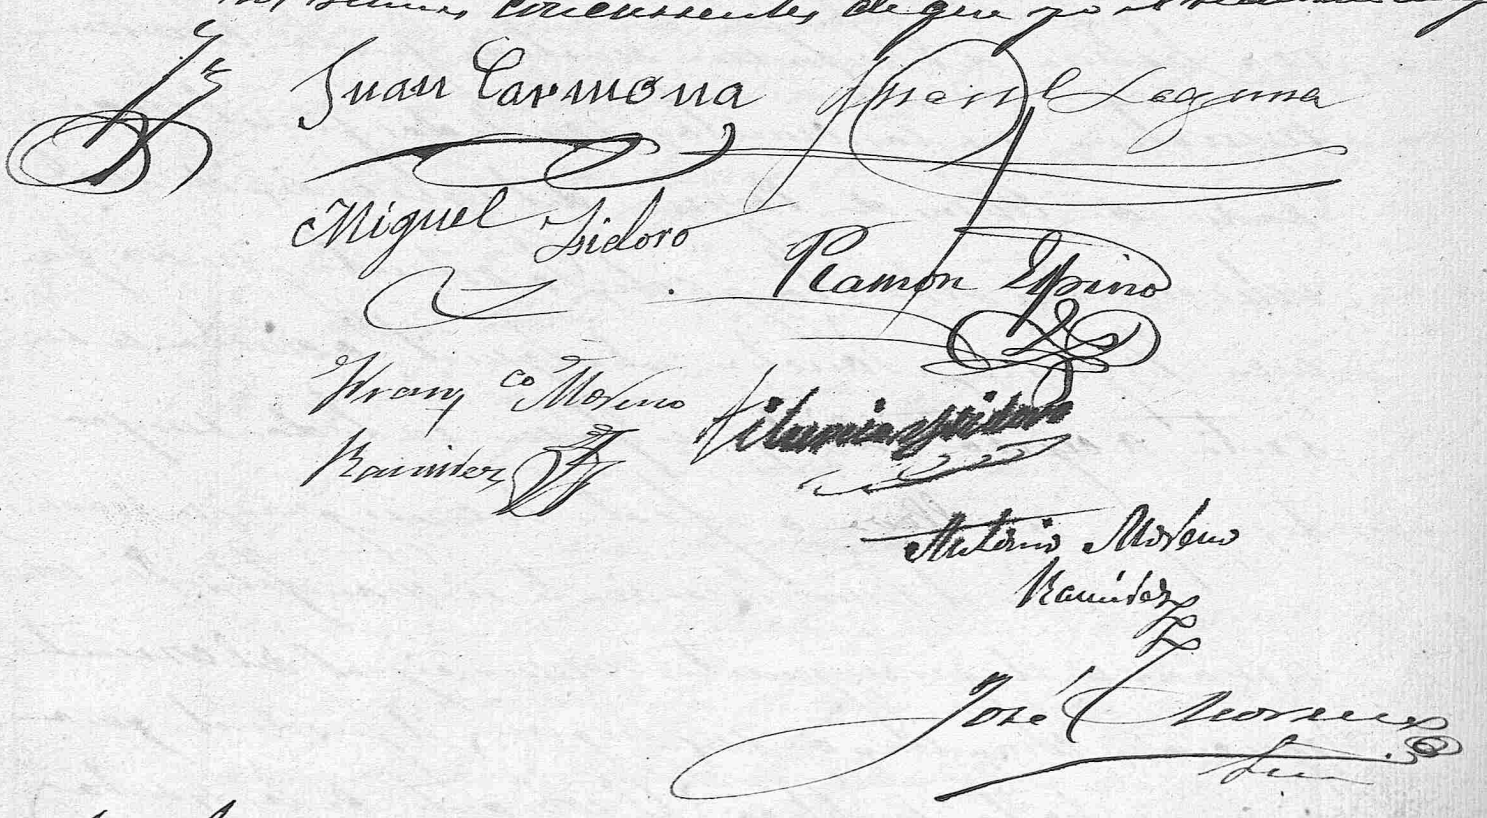 señores concurrentes de que yo el
Juan Carmona Manuel Laguna
Miguel Isidoro
Ramon Espino
Franco Moreno
Ramirez
Antonio Moreno
Ramirez
José Moreno